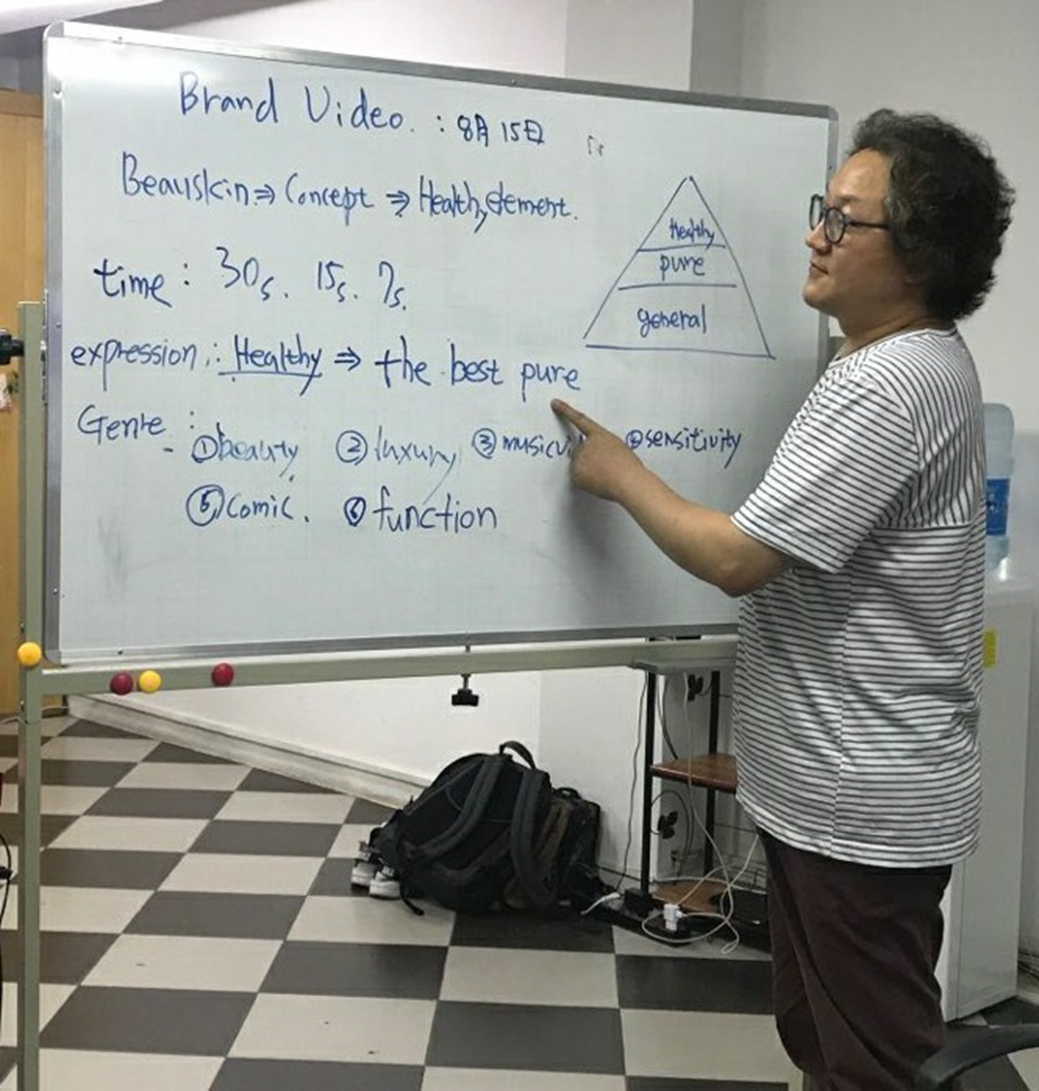 Brand Video. : 8月 15日
Beauskin ⇒ Concept ⇒ Healthy element.
time : 30s. 15s. 7s.
expression : Healthy ⇒ the best pure
Genre :
- ①beauty ②luxury ③ ④sensitivity
⑤comic. ⑥function
Healthy
pure
general